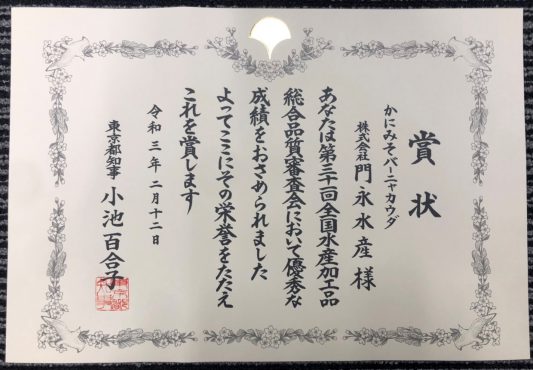 賞状
かにみそバーニャカウダ
株式会社 門永水産 様
あなたは第三十一回全国水産加工品
総合品質審査会において優秀な
成績をおさめられました
よってここにその栄誉をたたえ
これを賞します
令和三年二月十二日
東京都知事 小池百合子